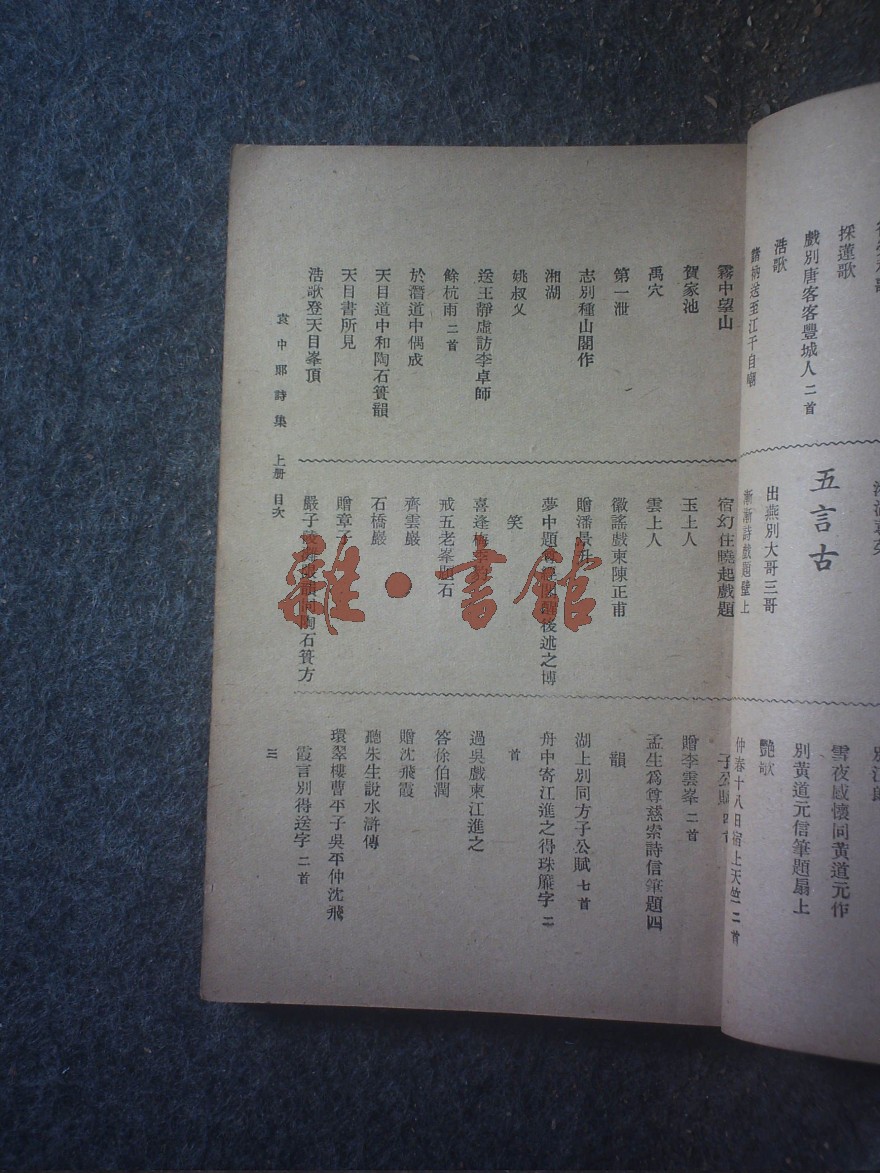 採蓮歌
戲別唐客客豐城人 二首
浩歌
送至江干自嘲
五言古
出燕別大哥三哥
漸漸詩戲題壁上
雪夜感懷同黃道元作
別黃道元信筆題扇上
艷歌
仲春十八日宿上天竺 二首
霧中望山
賀家池
禹穴
第一泄
志別種山閣作
湘湖
姚叔父
送王靜虛訪李卓師
餘杭雨 二首
於潛道中偶成
天目道中和陶石簣韻
天目書所見
浩歌登天目峯頂
宿幻住曉起戲題
玉上人
雲上人
徽謠戲柬陳正甫
贈潘景升
夢中題
後述之博
笑
喜逢梅季
戒五老峯題石
齊雲巖
石橋巖
贈章子
嚴子
陶石簣方
子公賦 四首
贈李雲峯 二首
孟生爲尊慈索詩信筆題四
韻
湖上別同方子公賦 七首
舟中寄江進之得珠簾字 二
首
過吳戲柬江進之
答徐伯潤
贈沈飛霞
聽朱生說水滸傳
環翠樓曹平子吳平仲沈飛
霞言別得送字 二首
袁中郎詩集 上册 目次
三
雜·書館